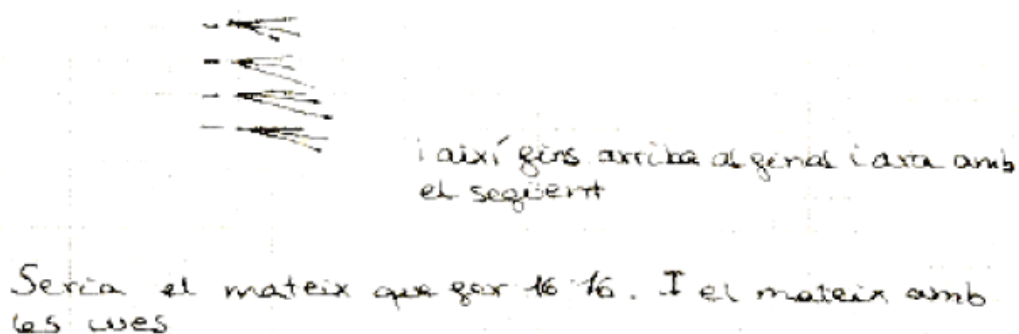 i així fins arriba al final i ara amb
el següent
Seria el mateix que fer 16·16. I el mateix amb
les cues